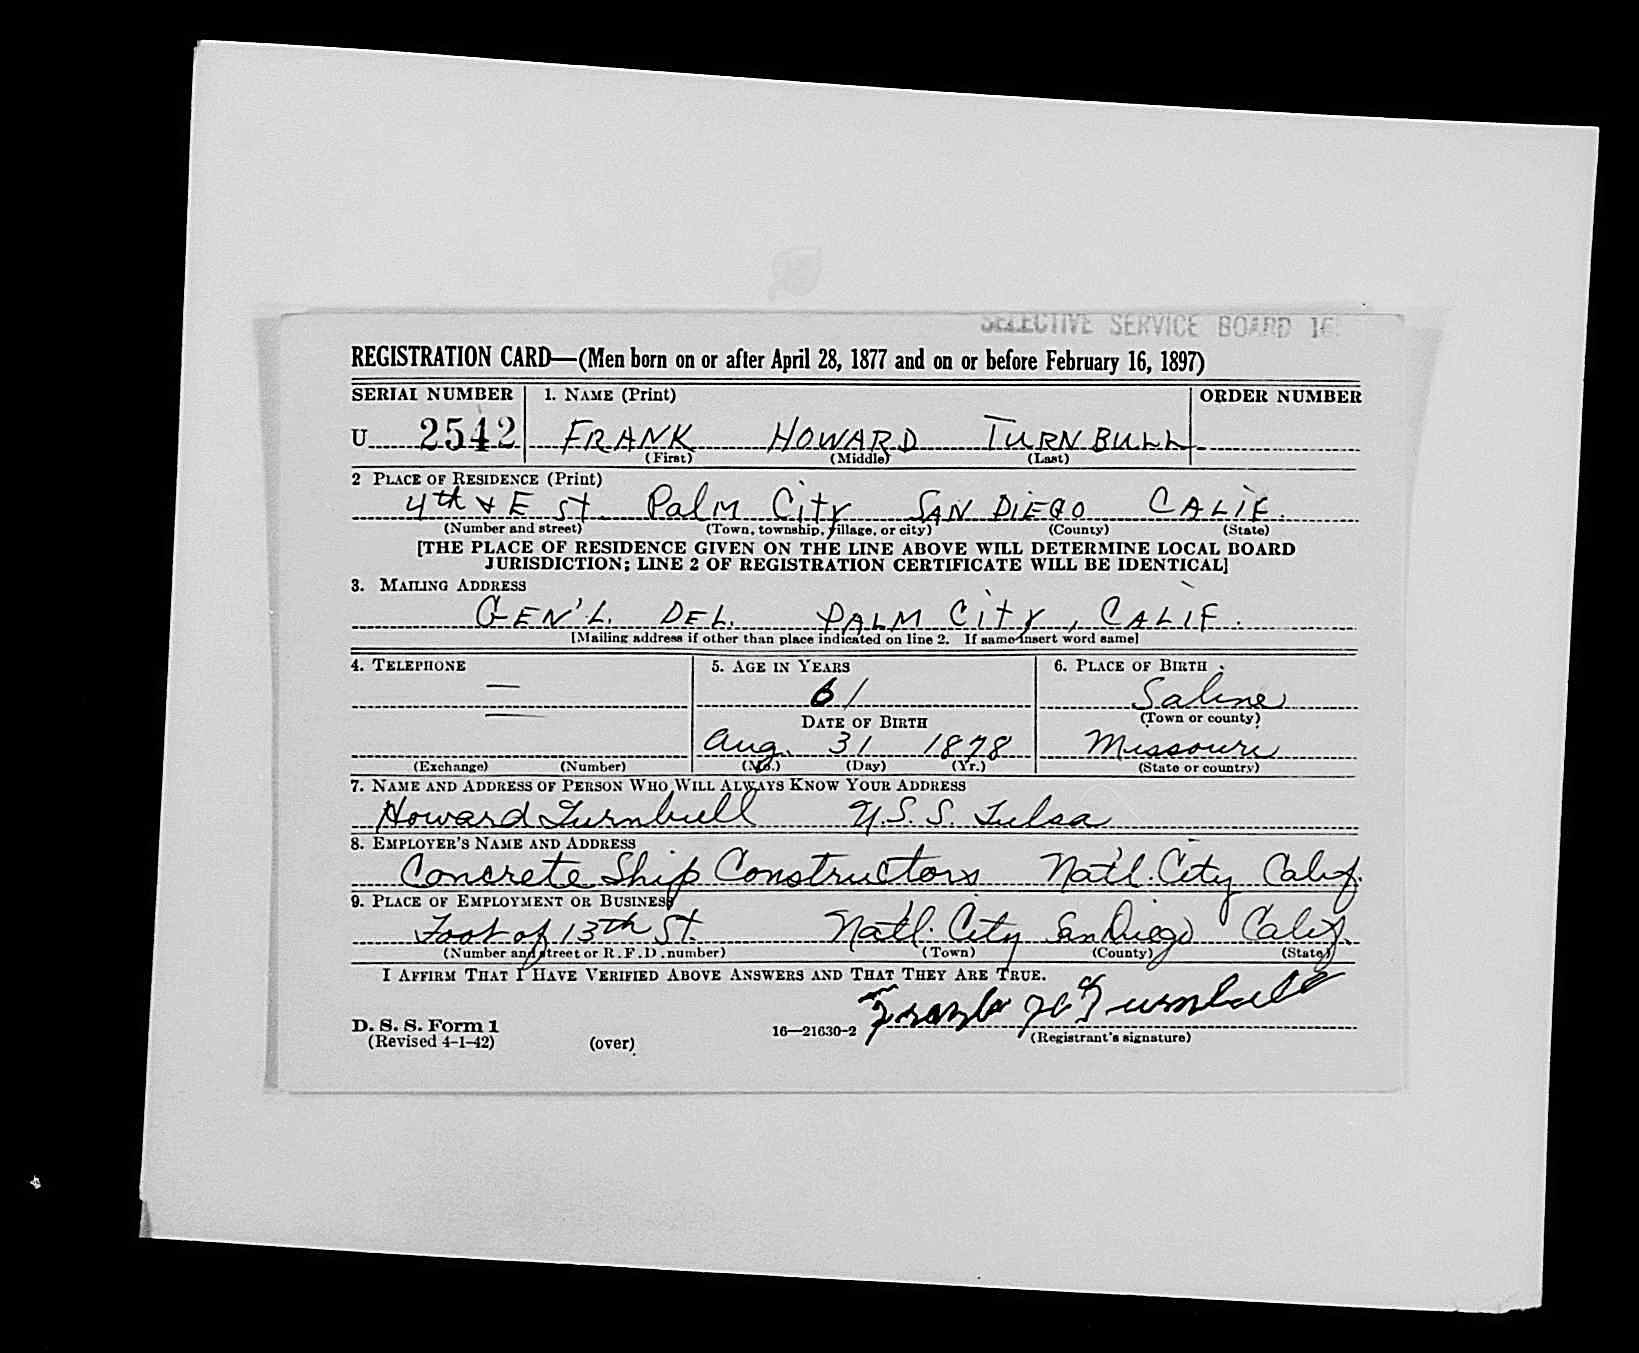 SELECTIVE SERVICE BOARD 16
REGISTRATION CARD—(Men born on or after April 28, 1877 and on or before February 16, 1897)
SERIAL NUMBER 1. NAME (Print) ORDER NUMBER
U 2542 FRANK HOWARD TURNBULL
(First) (Middle) (Last)
2 PLACE OF RESIDENCE (Print)
4th & E St. Palm City SAN DIEGO CALIF.
(Number and street) (Town, township, village, or city) (County) (State)
[THE PLACE OF RESIDENCE GIVEN ON THE LINE ABOVE WILL DETERMINE LOCAL BOARD
JURISDICTION; LINE 2 OF REGISTRATION CERTIFICATE WILL BE IDENTICAL]
3. MAILING ADDRESS
GEN'L. DEL. PALM CITY, CALIF.
[Mailing address if other than place indicated on line 2. If same insert word same]
4. TELEPHONE 5. AGE IN YEARS 6. PLACE OF BIRTH
— 61 Saline
DATE OF BIRTH (Town or county)
— Aug. 31 1878 Missouri
(Exchange) (Number) (Mo.) (Day) (Yr.) (State or country)
7. NAME AND ADDRESS OF PERSON WHO WILL ALWAYS KNOW YOUR ADDRESS
Howard Turnbull U.S.S. Tulsa
8. EMPLOYER'S NAME AND ADDRESS
Concrete Ship Constructors Nat'l. City Calif.
9. PLACE OF EMPLOYMENT OR BUSINESS
Foot of 13th St. Nat'l. City San Diego Calif.
(Number and street or R.F.D. number) (Town) (County) (State)
I AFFIRM THAT I HAVE VERIFIED ABOVE ANSWERS AND THAT THEY ARE TRUE.
Frank H Turnbull
D. S. S. Form 1
(Revised 4-1-42) (over) 16—21630-2 (Registrant's signature)